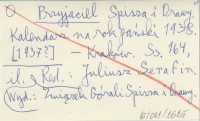 O Przyjaciel Spisza i Orawy.
Kalendarz na rok pański 1938.
[1937?] — Kraków. Ss. 164,
il. Red.: Juliusz Serafin.
Wyd.: Związek Górali Spisza i Orawy.